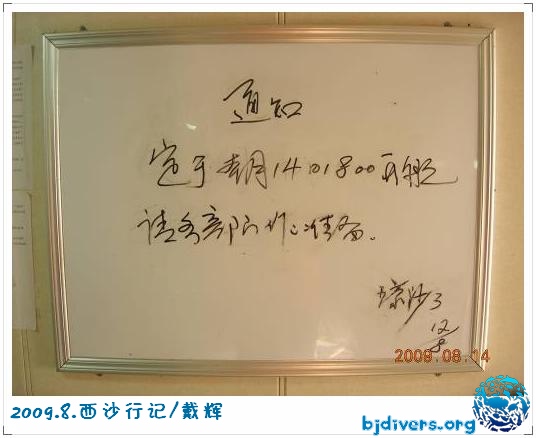 通知
定于本月14日1800开船
请各部门作好准备。
琼沙3
12/8
2009.08.14
2009.8.西沙行记/戴辉
bjdivers.org